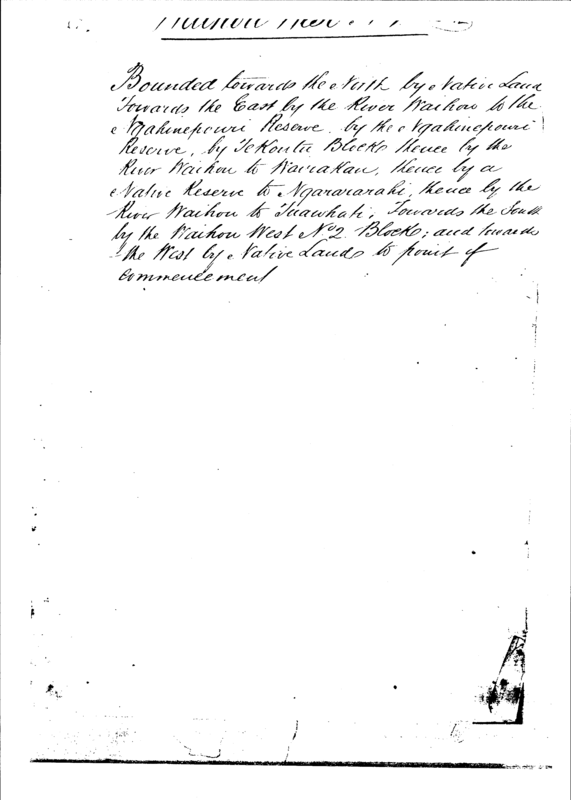 Bounded towards the North by Native Land
Towards the East by the River Waihou to the
Ngahinepouri Reserve. by the Ngahinepouri
Reserve, by Te Kontu Blocks thence by the
River Waihou to Wairakau, thence by a
Native Reserve to Ngarararahi, thence by the
River Waihou to Tuawhati, Towards the South
by the Waihou West No 2 Blocks; and towards
the West by Native Lands to point of
commencement